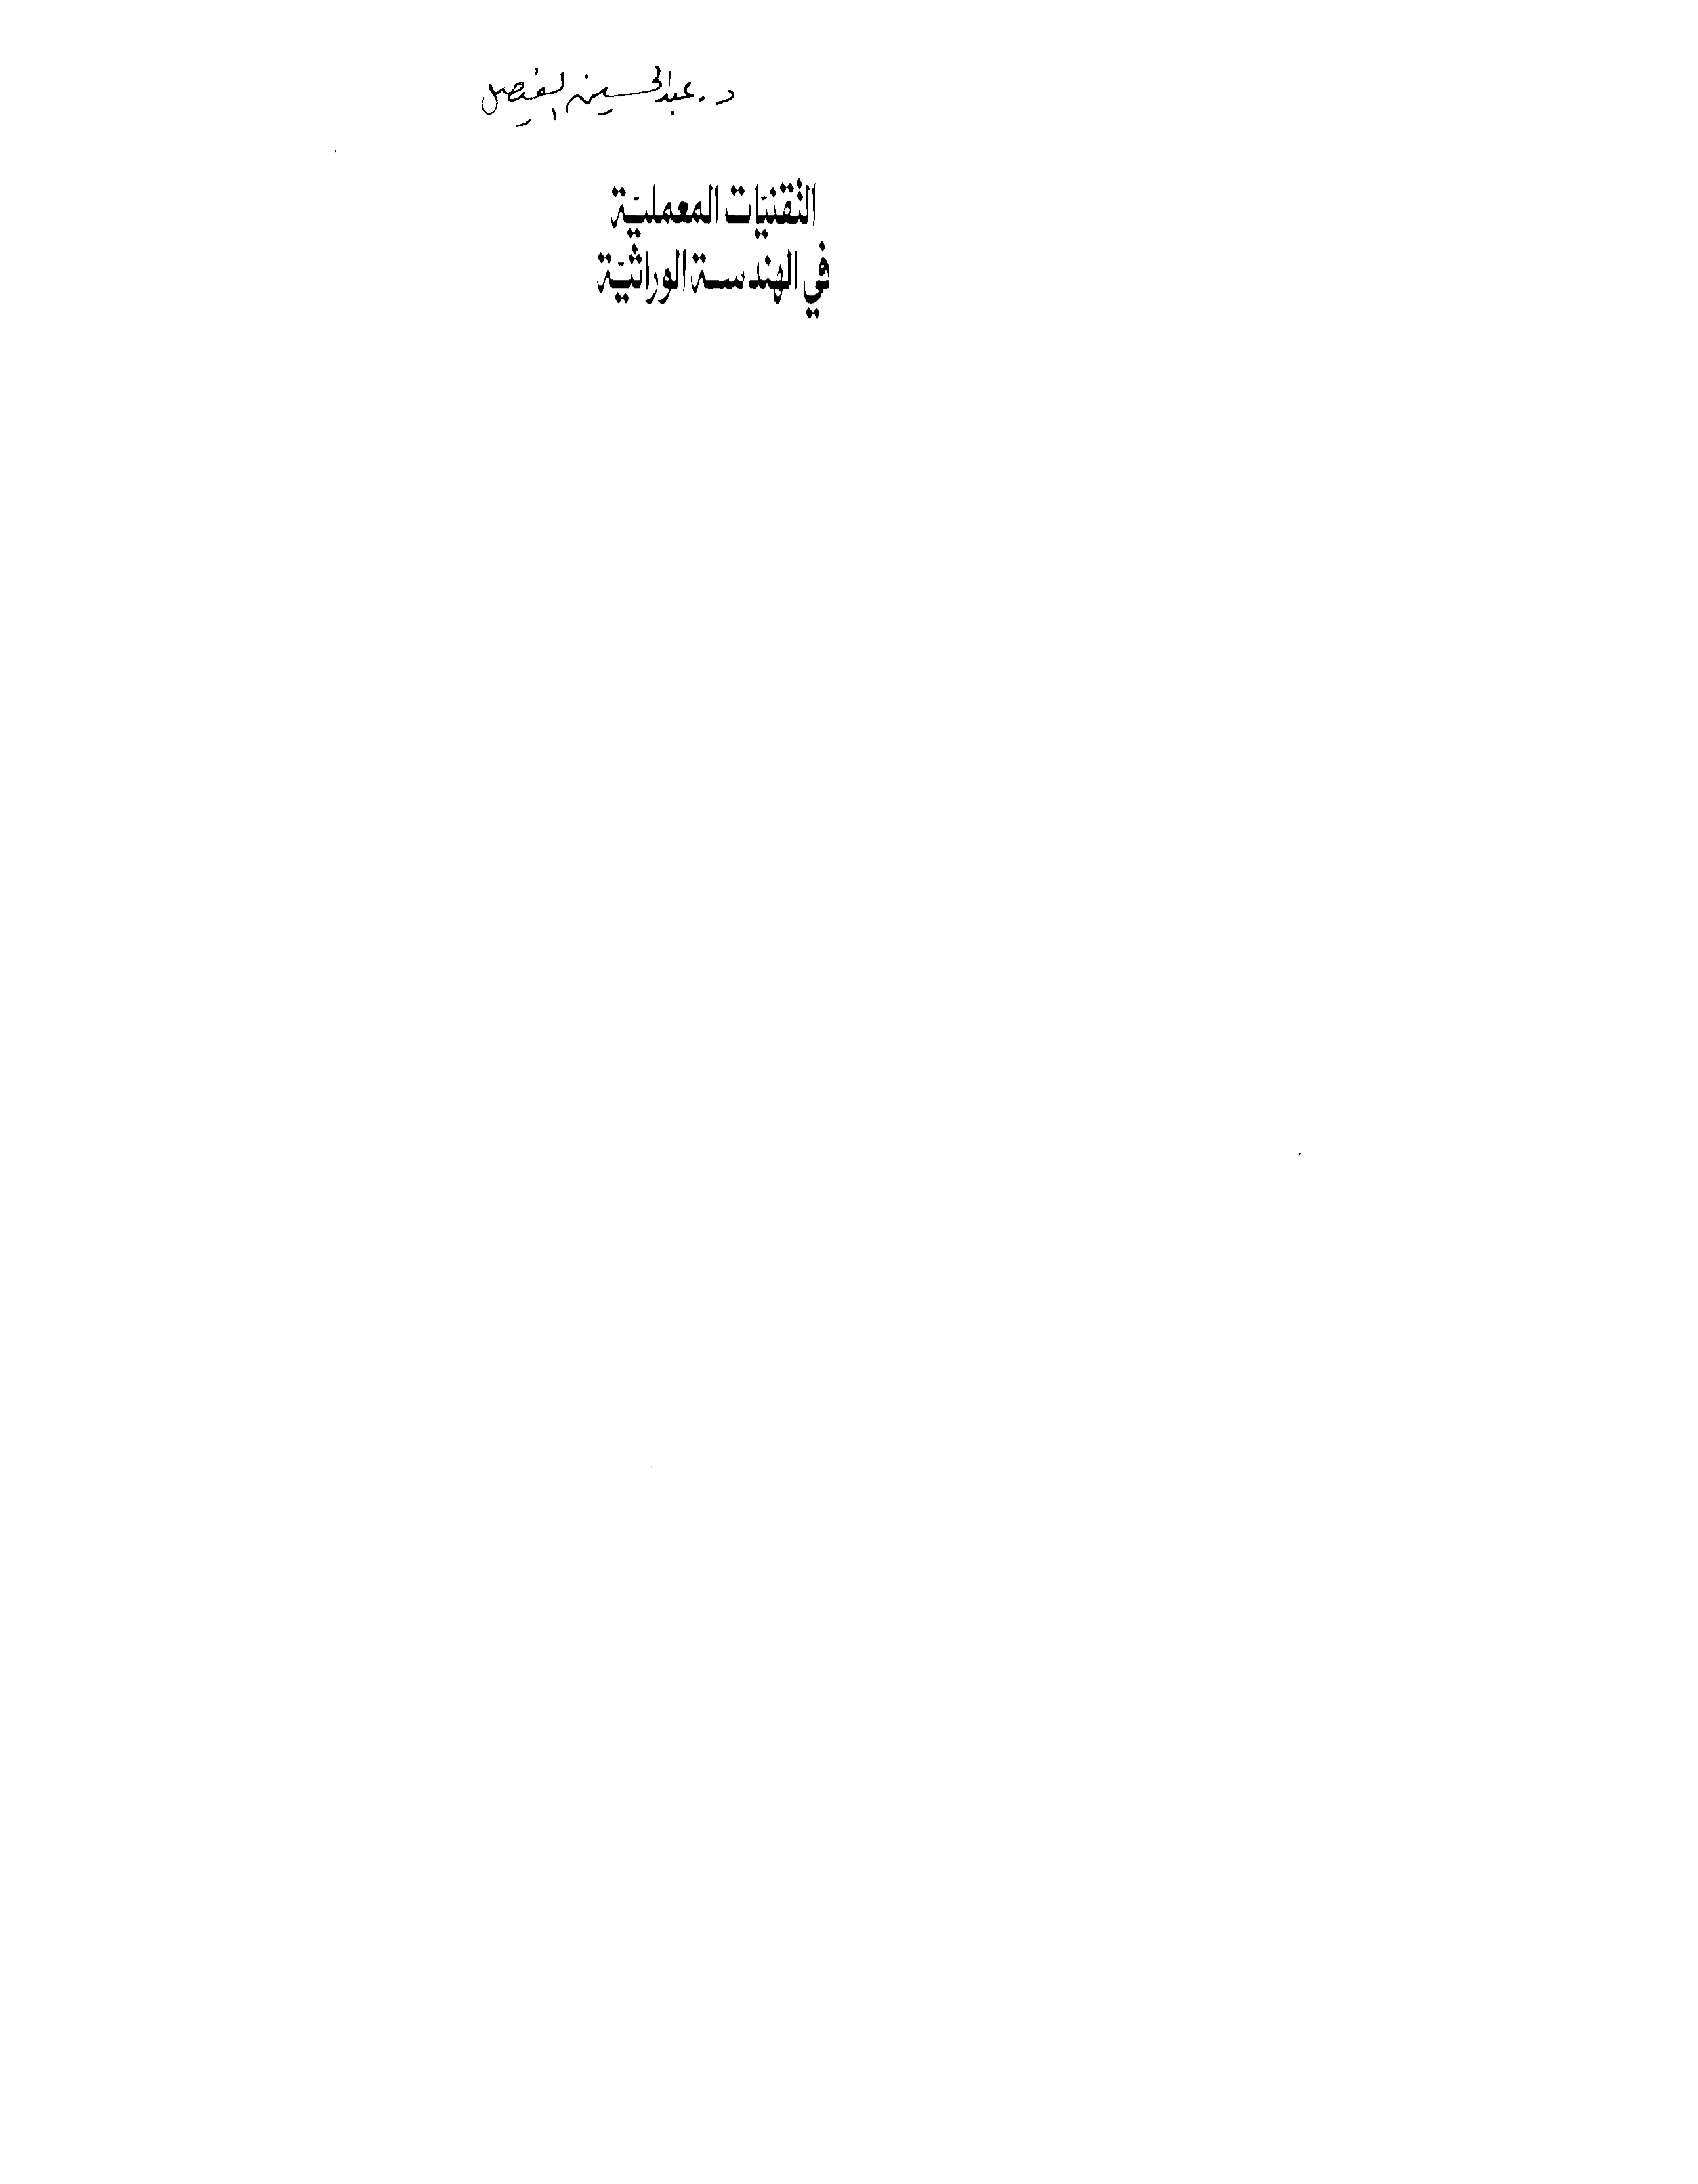 د. عبدالحسين الفيصل
التقنيّات المعمليّة
في الهندسة الوراثيّة